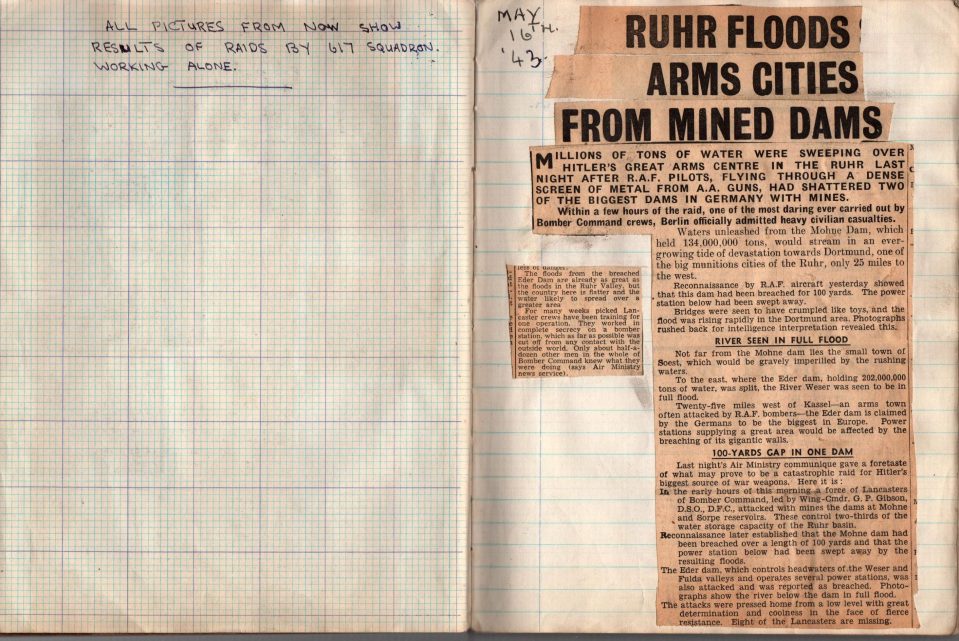 ALL PICTURES FROM NOW SHOW
RESULTS OF RAIDS BY 617 SQUADRON.
WORKING ALONE.
MAY
16TH.
'43.
RUHR FLOODS
ARMS CITIES
FROM MINED DAMS
MILLIONS OF TONS OF WATER WERE SWEEPING OVER
HITLER'S GREAT ARMS CENTRE IN THE RUHR LAST
NIGHT AFTER R.A.F. PILOTS, FLYING THROUGH A DENSE
SCREEN OF METAL FROM A.A. GUNS, HAD SHATTERED TWO
OF THE BIGGEST DAMS IN GERMANY WITH MINES.
Within a few hours of the raid, one of the most daring ever carried out by
Bomber Command crews, Berlin officially admitted heavy civilian casualties.
Waters unleashed from the Mohne Dam, which
held 134,000,000 tons, would stream in an ever-
growing tide of devastation towards Dortmund, one of
the big munitions cities of the Ruhr, only 25 miles to
the west.
Reconnaissance by R.A.F. aircraft yesterday showed
that this dam had been breached for 100 yards. The power
station below had been swept away.
Bridges were seen to have crumpled like toys, and the
flood was rising rapidly in the Dortmund area. Photographs
rushed back for intelligence interpretation revealed this.
RIVER SEEN IN FULL FLOOD
Not far from the Mohne dam lies the small town of
Soest, which would be gravely imperilled by the rushing
waters.
To the east, where the Eder dam, holding 202,000,000
tons of water, was split, the River Weser was seen to be in
full flood.
Twenty-five miles west of Kassel—an arms town
often attacked by R.A.F. bombers—the Eder dam is claimed
by the Germans to be the biggest in Europe. Power
stations supplying a great area would be affected by the
breaching of its gigantic walls.
100-YARDS GAP IN ONE DAM
Last night's Air Ministry communique gave a foretaste
of what may prove to be a catastrophic raid for Hitler's
biggest source of war weapons. Here it is :
In the early hours of this morning a force of Lancasters
of Bomber Command, led by Wing-Cmdr. G. P. Gibson,
D.S.O., D.F.C., attacked with mines the dams at Mohne
and Sorpe reservoirs. These control two-thirds of the
water storage capacity of the Ruhr basin.
Reconnaissance later established that the Mohne dam had
been breached over a length of 100 yards and that the
power station below had been swept away by the
resulting floods.
The Eder dam, which controls headwaters of the Weser and
Fulda valleys and operates several power stations, was
also attacked and was reported as breached. Photo-
graphs show the river below the dam in full flood.
The attacks were pressed home from a low level with great
determination and coolness in the face of fierce
resistance. Eight of the Lancasters are missing.
less of danger.
The floods from the breached
Eder Dam are already as great as
the floods in the Ruhr Valley, but
the country here is flatter and the
water likely to spread over a
greater area
For many weeks picked Lan-
caster crews have been training for
one operation. They worked in
complete secrecy on a bomber
station, which as far as possible was
cut off from any contact with the
outside world. Only about half-a-
dozen other men in the whole of
Bomber Command knew what they
were doing (says Air Ministry
news service).